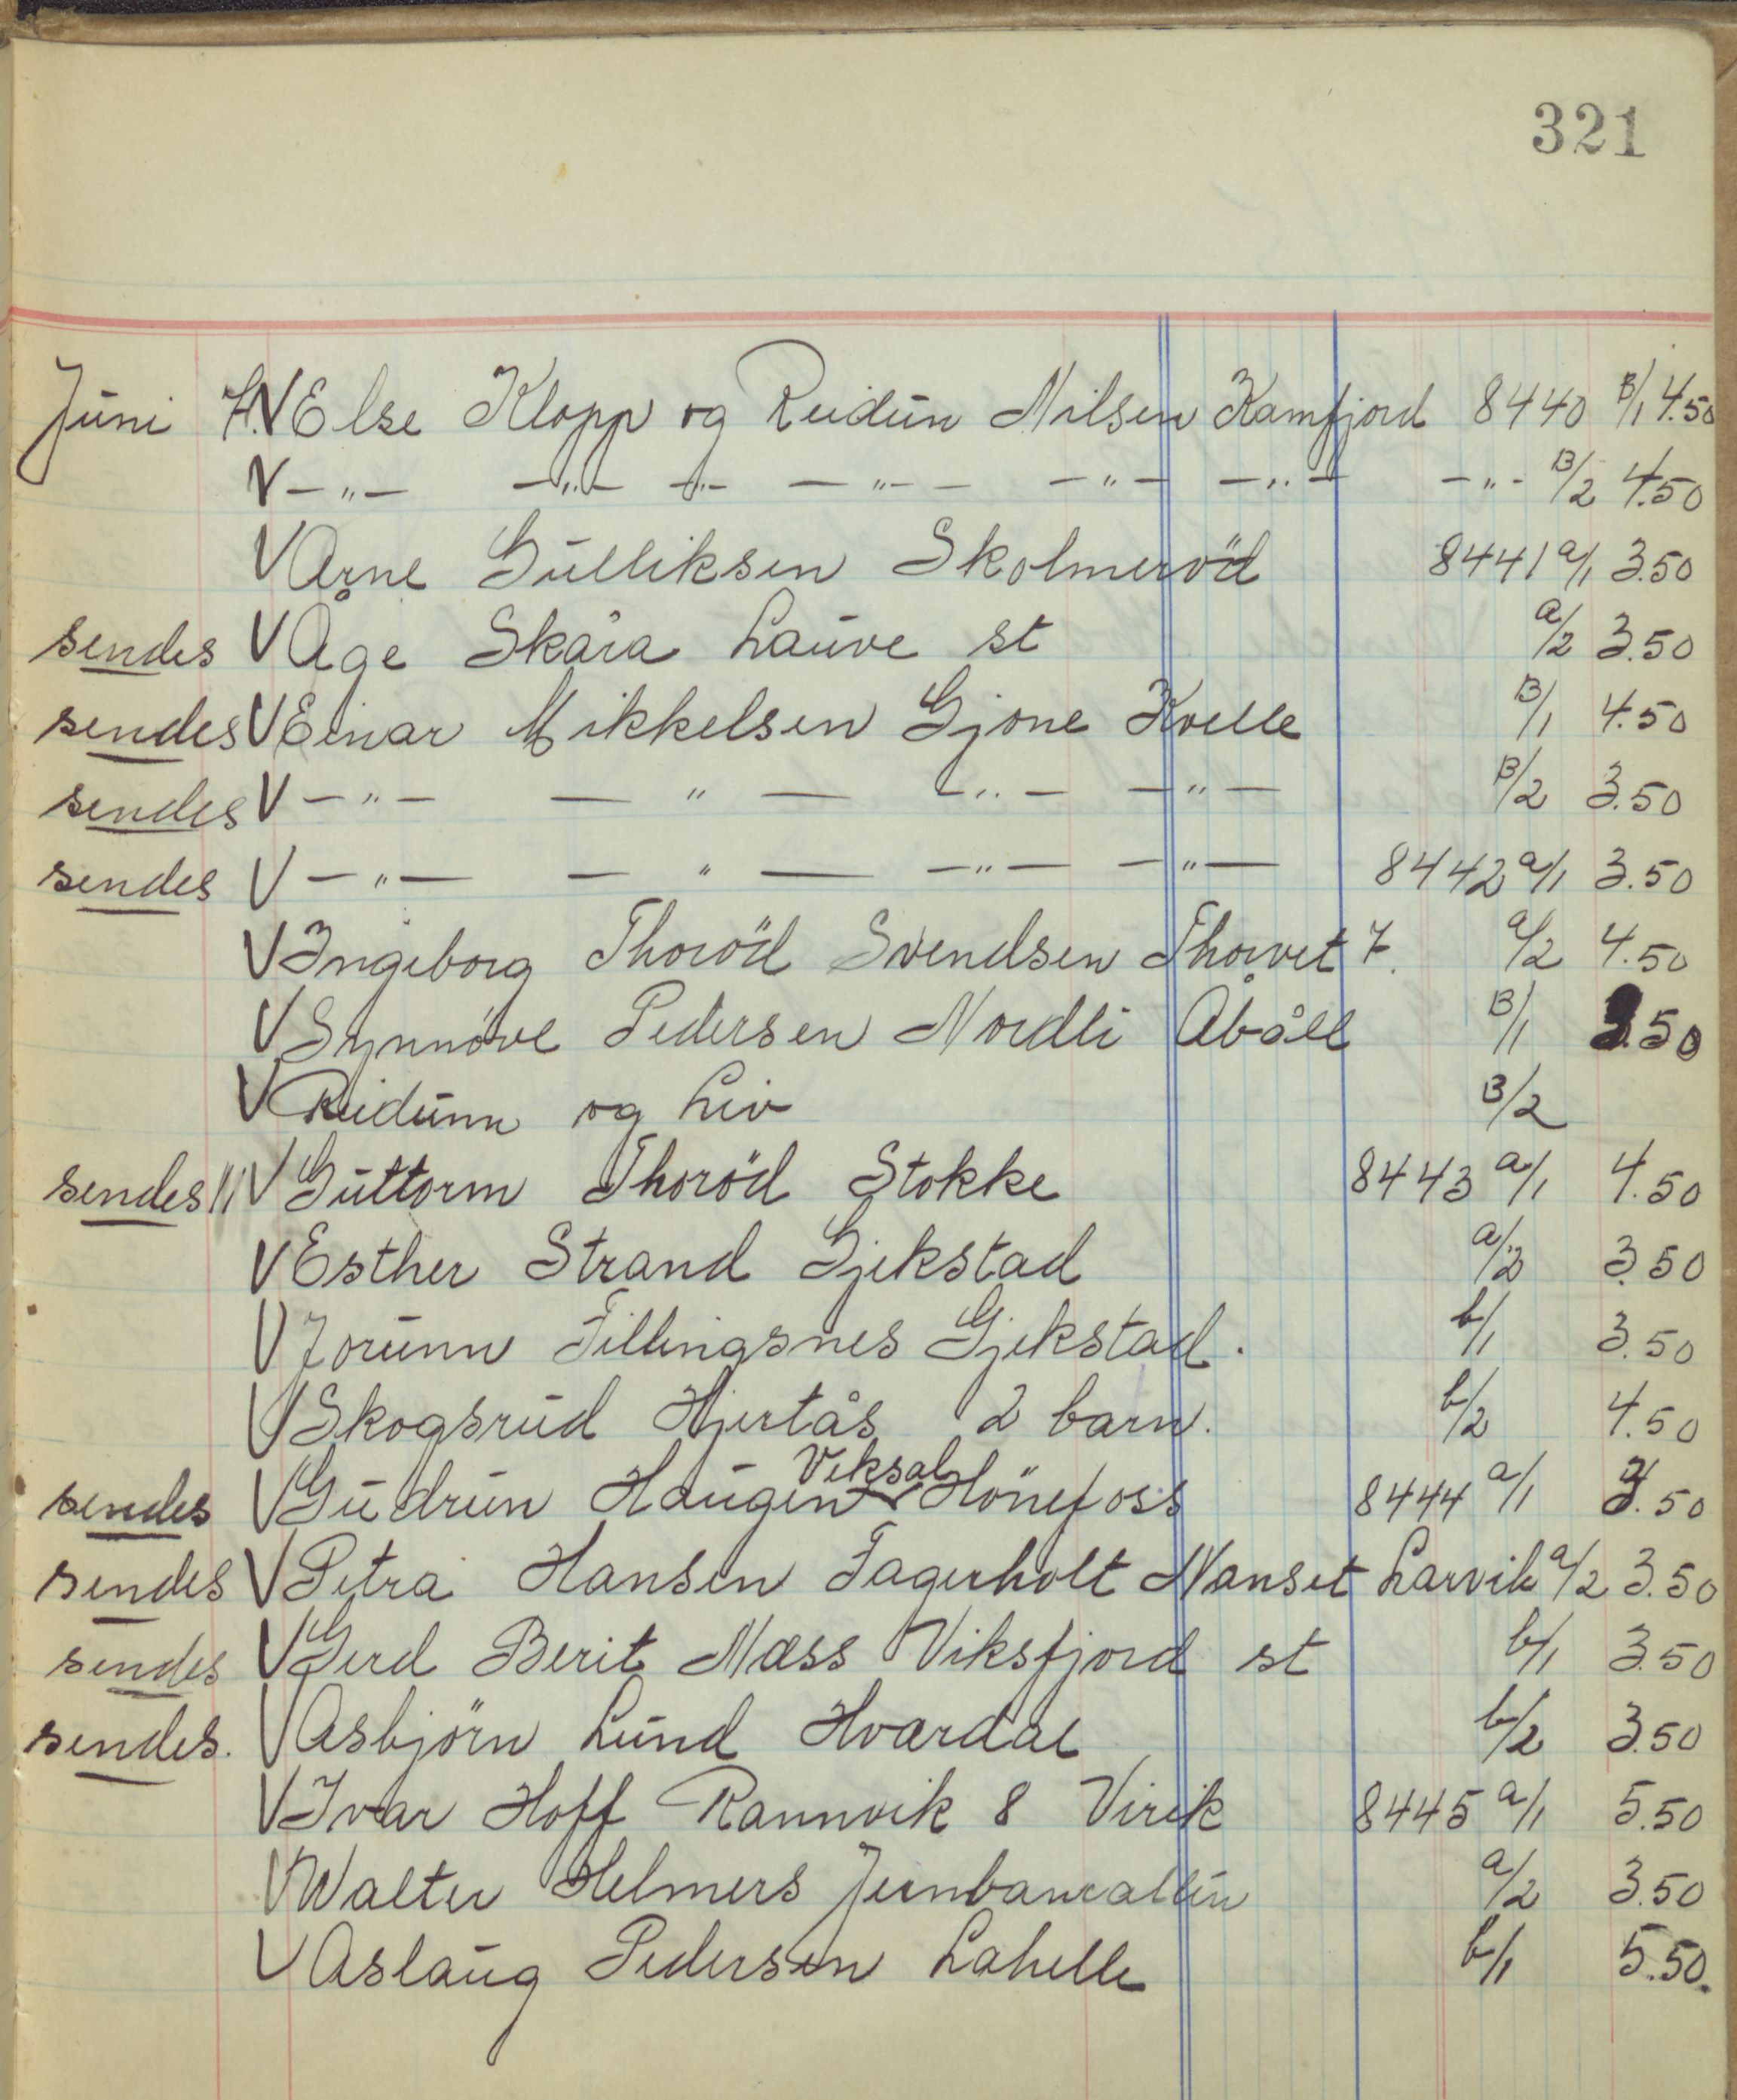 321
Juni 7. V Else Klopp og Reidun Nilsen Kamfjord 8440 B/1 4.50
V -"- -"- -"- -"- -"- -"- -"- B/2 4.50
V Arne Gulliksen Skolmeröd 8441 a/1 3.50
sendes V Åge Skåra Lauve st a/2 3.50
sendes V Einar Mikkelsen Gjone Kvelle B/1 4.50
sendes V -"- -"- -"- -"- B/2 3.50
sendes V -"- -"- -"- -"- 8442 a/1 3.50
V Ingeborg Thoröd Svendsen Thorvet 7. a/2 4.50
V Synnöve Pedersen Nordli Åbåll B/1 3.50
V Reidunn og Liv B/2
sendes V Guttorm Thoröd Stokke 8443 a/1 4.50
V Esther Strand Gjekstad a/2 3.50
V Jorunn Fillingsnes Gjekstad. b/1 3.50
V Skogsrud Hjertås 2 barn. b/2 4.50
Viksal
sendes V Gudrun Haugen Hönefoss 8444 a/1 .50
sendes V Petra Hansen Fagerholt Nanset Larvik a/2 3.50
sendes V Gerd Berit Mæss Viksfjord st b/1 3.50
sendes. V Asbjörn Lund Hvardal b/2 3.50
V Ivar Hoff Rannvik 8 Virik 8445 a/1 5.50
V Walter Helmers a/2 3.50
V Aslaug Pedersen Lahelle b/1 5.50.